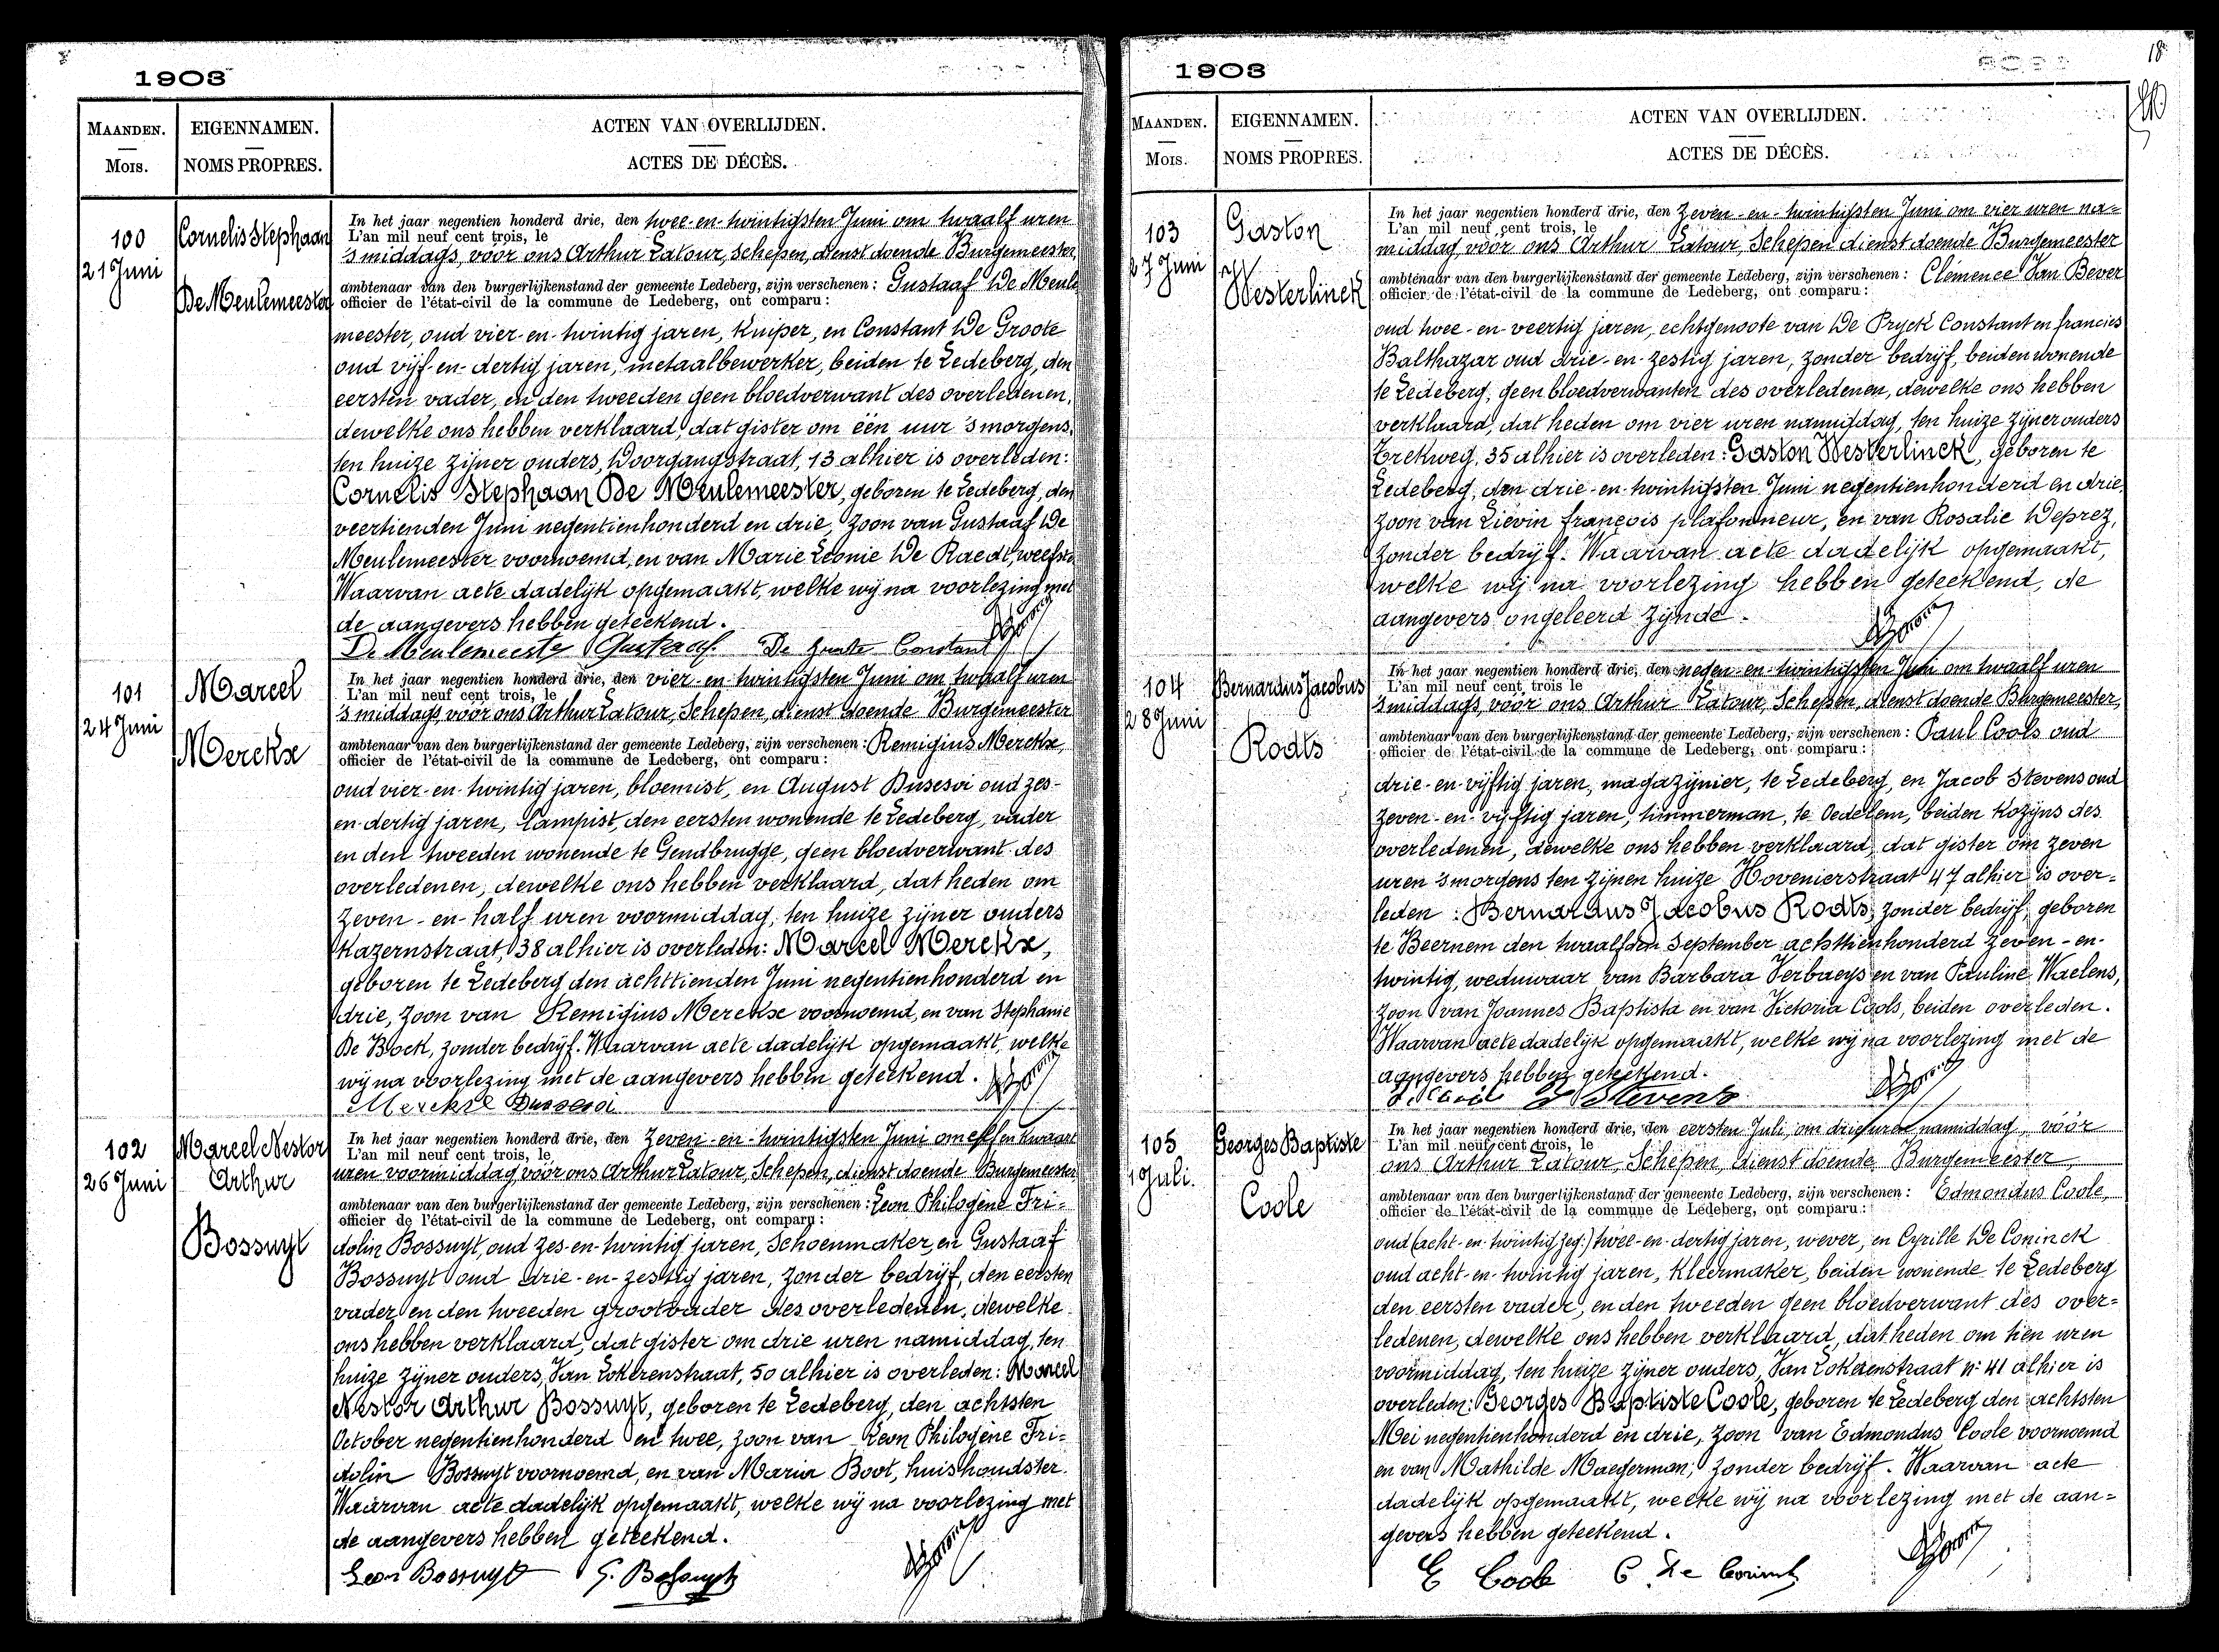 1903
MAANDEN.
MOIS.
EIGENNAMEN.
NOMS PROPRES.
ACTEN VAN OVERLIJDEN.
ACTES DE DÉCÈS.
100
21 Juni
Cornelis Stephaan
De Meulemeester
In het jaar negentien honderd drie, den twee-en-twintigsten Juni om twaalf uren
L'an mil neuf cent trois, le
'smiddags, vóór ons Arthur Latour, Schepen, dienst doende Burgemeester,
ambtenaar van den burgerlijkenstand der gemeente Ledeberg, zijn verschenen: Gustaaf De Meule
officier de l'état-civil de la commune de Ledeberg, ont comparu:
meester, oud vier-en-twintig jaren, kuiper, en Constant De Groote
oud vijf-en-dertig jaren, metaalbewerker, beiden te Ledeberg, den
eersten vader, en den tweeden geen bloedverwant des overledenen,
dewelke ons hebben verklaard, dat gister om één uur 'smorgens,
ten huize zijner ouders, Doorgangstraat, 13 alhier is overleden:
Cornelis Stephaan De Meulemeester, geboren te Ledeberg, den
veertienden Juni negentienhonderd en drie, zoon van Gustaaf De
Meulemeester voornoemd, en van Marie Leonie De Raedt, weefster
Waarvan acte dadelijk opgemaakt, welke wij na voorlezing met
de aangevers hebben geteekend.
De Meulemeester Gustaaf De Groote Constant
101
24 Juni
Marcel
Merckx
In het jaar negentien honderd drie, den vier-en-twintigsten Juni om twaalf uren
L'an mil neuf cent trois, le
'smiddags vóór ons Arthur Latour, Schepen, dienst doende Burgemeester
ambtenaar van den burgerlijkenstand der gemeente Ledeberg, zijn verschenen: Remigius Merckx,
officier de l'état-civil de la commune de Ledeberg, ont comparu:
oud vier-en-twintig jaren, bloemist, en August Dusesoi oud zes-
en-dertig jaren, lampist, den eersten wonende te Ledeberg, vader
en den tweeden wonende te Gendbrugge, geen bloedverwant des
overledenen, dewelke ons hebben verklaard, dat heden om
zeven-en-half uren voormiddag, ten huize zijner ouders
Kazernstraat, 38 alhier is overleden: Marcel Merckx,
geboren te Ledeberg den achttienden Juni negentienhonderd en
drie, zoon van Remigius Merckx voornoemd, en van Stephanie
De Bock, zonder bedrijf. Waarvan acte dadelijk opgemaakt, welke
wij na voorlezing met de aangevers hebben geteekend.
Merckx Dusesoi
102
26 Juni
Marcel Nestor
Arthur
Bossuyt
In het jaar negentien honderd drie, den zeven-en-twintigsten Juni om elf en kwaart
L'an mil neuf cent trois, le
uren voormiddag vóór ons Arthur Latour, Schepen, dienst doende Burgemeester
ambtenaar van den burgerlijkenstand der gemeente Ledeberg, zijn verschenen: Leon Philogène Fri=
officier de l'état-civil de la commune de Ledeberg, ont comparu:
dolin Bossuyt, oud zes-en-twintig jaren, Schoenmaker, en Gustaaf
Bossuyt oud drie-en-zestig jaren, zonder bedrijf, den eersten
vader en den tweeden grootvader des overledenen, dewelke
ons hebben verklaard, dat gister om drie uren namiddag, ten
huize zijner ouders, Van Lokerenstraat, 50 alhier is overleden: Marcel
Nestor Arthur Bossuyt, geboren te Ledeberg, den achtsten
October negentienhonderd en twee, zoon van Leon Philogène Fri=
dolin Bossuyt voornoemd, en van Maria Boot, huishoudster.
Waarvan acte dadelijk opgemaakt, welke wij na voorlezing met
de aangevers hebben geteekend.
Leon Bossuyt G. Bossuyt
1903
18
MAANDEN.
MOIS.
EIGENNAMEN.
NOMS PROPRES.
ACTEN VAN OVERLIJDEN.
ACTES DE DÉCÈS.
103
27 Juni
Gaston
Westerlinck
In het jaar negentien honderd drie, den zeven-en-twintigsten Juni om vier uren na=
L'an mil neuf cent trois, le
middag vóór ons Arthur Latour, Schepen dienst doende Burgemeester
ambtenaar van den burgerlijkenstand der gemeente Ledeberg, zijn verschenen: Clémence Van Bever
officier de l'état-civil de la commune de Ledeberg, ont comparu:
oud twee-en-veertig jaren, echtgenoote van De Pryck Constant en francies
Balthazar oud drie-en-zestig jaren, zonder bedrijf, beiden wonende
te Ledeberg, geen bloedverwanten des overledenen, dewelke ons hebben
verklaard, dat heden om vier uren namiddag, ten huize zijner ouders
Trekweg, 35 alhier is overleden: Gaston Westerlinck, geboren te
Ledeberg, den drie-en-twintigsten Juni negentienhonderd en drie,
zoon van Lievin françois plafonneur, en van Rosalie Deprez,
zonder bedrijf. Waarvan acte dadelijk opgemaakt,
welke wij na voorlezing hebben geteekend, de
aangevers ongeleerd zijnde.
104
28 Juni
Bernardus Jacobus
Rodts
In het jaar negentien honderd drie, den negen-en-twintigsten Juni om twaalf uren
L'an mil neuf cent trois le
'smiddags, vóór ons Arthur Latour, Schepen, dienst doende Burgemeester,
ambtenaar van den burgerlijkenstand der gemeente Ledeberg, zijn verschenen: Paul Cools oud
officier de l'état-civil de la commune de Ledeberg, ont comparu:
drie-en-vijftig jaren, magazijnier, te Ledeberg, en Jacob Stevens oud
zeven-en-vijftig jaren, timmerman, te Oedelem, beiden kozijns des
overledenen, dewelke ons hebben verklaard, dat gister om zeven
uren 'smorgens ten zijnen huize Hovenierstraat 47 alhier is over=
leden: Bernardus Jacobus Rodts, zonder bedrijf, geboren
te Beernem den twaalfden September achttienhonderd zeven-en-
twintig, weduwaar van Barbara Verbaeys en van Pauline Waelens,
zoon van Joannes Baptista en van Victoria Cools, beiden overleden.
Waarvan acte dadelijk opgemaakt, welke wij na voorlezing met de
aangevers hebben geteekend.
Stevens
105
1 Juli.
Georges Baptiste
Coole
In het jaar negentien honderd drie, den eersten Juli, om drie uren namiddag, vóór
L'an mil neuf cent trois, le
ons Arthur Latour, Schepen, dienst doende Burgemeester,
ambtenaar van den burgerlijkenstand der gemeente Ledeberg, zijn verschenen: Edmondus Coole,
officier de l'état-civil de la commune de Ledeberg, ont comparu:
oud (acht-en-twintig zeg:) twee-en-dertig jaren, wever, en Cyrille De Coninck
oud acht-en-twintig jaren, kleermaker, beiden wonende te Ledeberg
den eersten vader, en den tweeden geen bloedverwant des over=
ledenen, dewelke ons hebben verklaard, dat heden om tien uren
voormiddag, ten huize zijner ouders, Van Lokerenstraat nr 41 alhier is
overleden: Georges Baptiste Coole, geboren te Ledeberg den achtsten
Mei negentienhonderd en drie, zoon van Edmondus Coole voornoemd
en van Mathilde Maegerman, zonder bedrijf. Waarvan acte
dadelijk opgemaakt, welke wij na voorlezing met de aan=
gevers hebben geteekend.
E Coole C. De Coninck